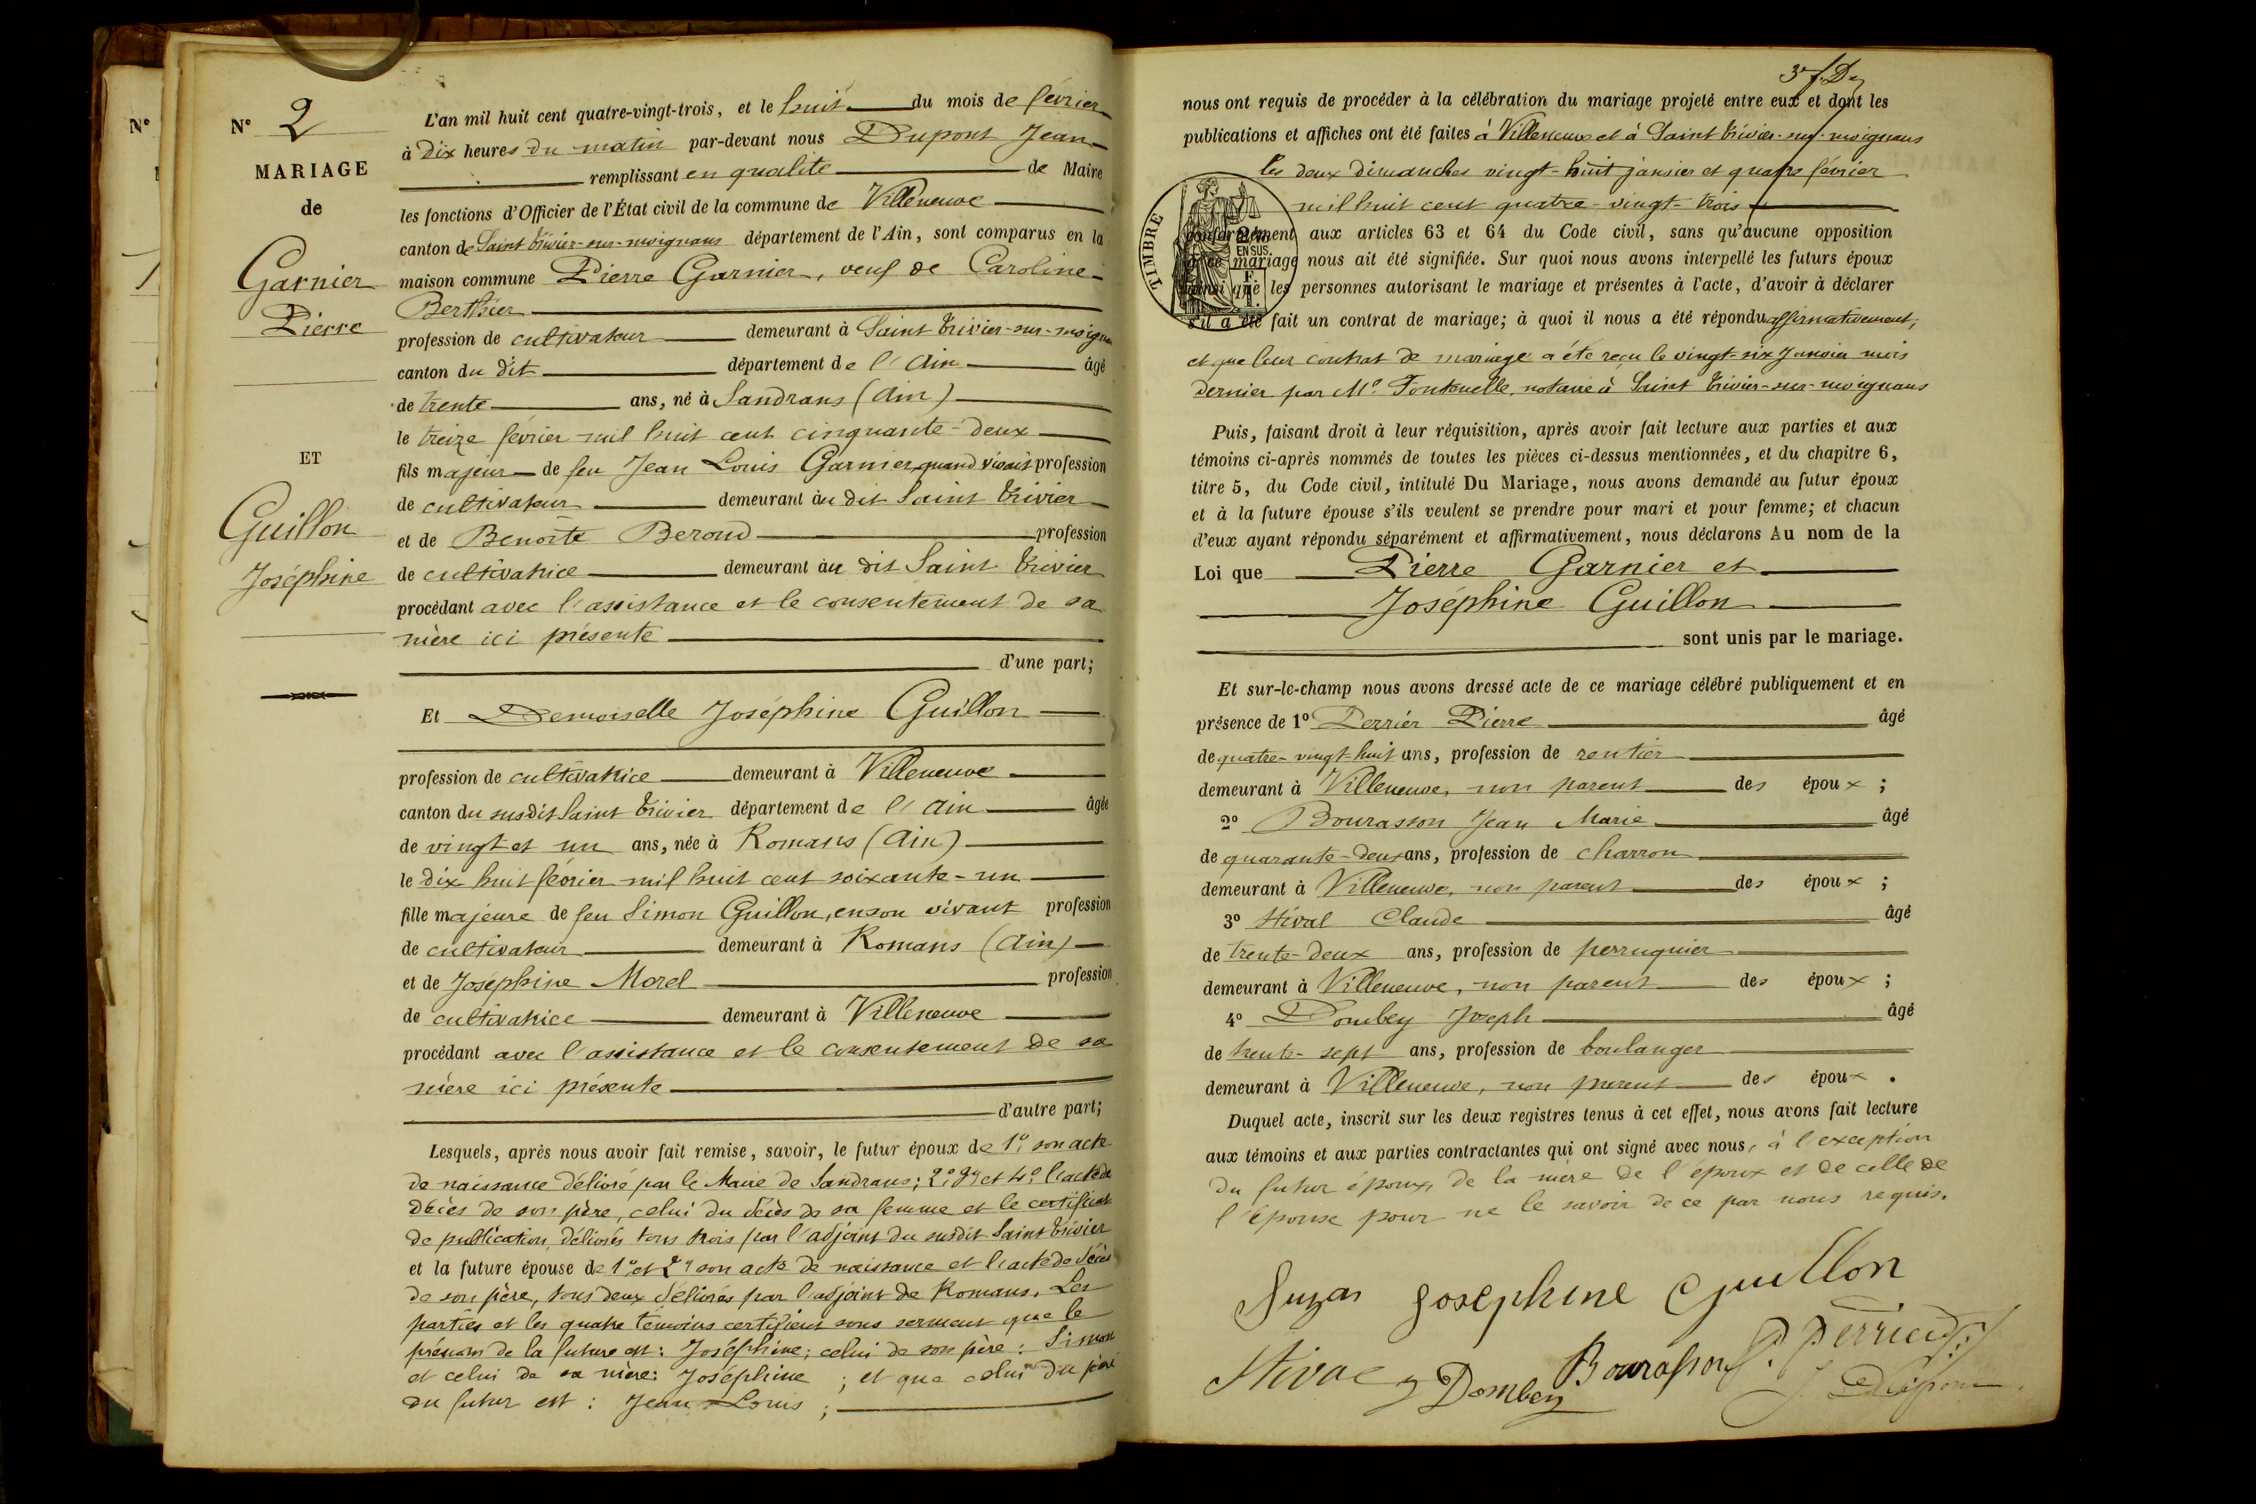 N°
N° 2
MARIAGE
de
Garnier
Pierre
ET
Guillon
Joséphine
L'an mil huit cent quatre-vingt-trois, et le huit du mois de février
à dix heures du matin par-devant nous Dupont Jean
remplissant en qualité de Maire
les fonctions d'Officier de l'État civil de la commune de Villeneuve
canton de Saint Trivier-sur-moignans département de l'Ain, sont comparus en la
maison commune Pierre Garnier, veuf de Caroline
Berthier
profession de cultivateur demeurant à Saint Trivier-sur-moignans
canton du dit département de l'Ain âgé
de trente ans, né à Sandrans (Ain)
le treize février mil huit cent cinquante-deux
fils majeur de feu Jean Louis Garnier quand vivait profession
de cultivateur demeurant au dit Saint Trivier
et de Benoîte Beroud profession
de cultivatrice demeurant au dit Saint Trivier
procédant avec l'assistance et le consentement de sa
mère ici présente
d'une part;
Et Demoiselle Joséphine Guillon
profession de cultivatrice demeurant à Villeneuve
canton du susdit Saint Trivier département de l'Ain âgée
de vingt et un ans, née à Romans (Ain)
le dix huit février mil huit cent soixante-un
fille majeure de feu Simon Guillon, en son vivant profession
de cultivateur demeurant à Romans (Ain)
et de Joséphine Morel profession
de cultivatrice demeurant à Villeneuve
procédant avec l'assistance et le consentement de sa
mère ici présente
d'autre part;
Lesquels, après nous avoir fait remise, savoir, le futur époux de 1° son acte
de naissance délivré par le Maire de Sandrans; 2° 3° et 4° l'acte de
décès de son père, celui du décès de sa femme et le certificat
de publication, délivrés tous trois par l'adjoint du susdit Saint Trivier
et la future épouse de 1° et 2° son acte de naissance et l'acte de décès
de son père, tous deux délivrés par l'adjoint de Romans. Les
parties et les quatre témoins certifient sous serment que le
prénom de la future est: Joséphine; celui de son père: Simon
et celui de sa mère: Joséphine ; et que celui du père
du futur est: Jean Louis ;
nous ont requis de procéder à la célébration du mariage projeté entre eux et dont les
publications et affiches ont été faites à Villeneuve et à Saint Trivier-sur-moignans
les deux dimanches vingt-huit janvier et quatre février
mil huit cent quatre-vingt-trois
conformément aux articles 63 et 64 du Code civil, sans qu'aucune opposition
à ce mariage nous ait été signifiée. Sur quoi nous avons interpellé les futurs époux
ainsi que les personnes autorisant le mariage et présentes à l'acte, d'avoir à déclarer
s'il a été fait un contrat de mariage; à quoi il nous a été répondu affirmativement,
et que leur contrat de mariage a été reçu le vingt-six Janvier mois
dernier par Me. Fontenelle, notaire à Saint Trivier-sur-moignans
TIMBRE
EN SUS
Puis, faisant droit à leur réquisition, après avoir fait lecture aux parties et aux
témoins ci-après nommés de toutes les pièces ci-dessus mentionnées, et du chapitre 6,
titre 5, du Code civil, intitulé Du Mariage, nous avons demandé au futur époux
et à la future épouse s'ils veulent se prendre pour mari et pour femme; et chacun
d'eux ayant répondu séparément et affirmativement, nous déclarons Au nom de la
Loi que Pierre Garnier et
Joséphine Guillon
sont unis par le mariage.
Et sur-le-champ nous avons dressé acte de ce mariage célébré publiquement et en
présence de 1° Perrier Pierre âgé
de quatre-vingt-huit ans, profession de rentier
demeurant à Villeneuve, non parent des époux ;
2° Bourasson Jean Marie âgé
de quarante-deux ans, profession de charron
demeurant à Villeneuve, non parent des époux ;
3° Stival Claude âgé
de trente-deux ans, profession de perruquier
demeurant à Villeneuve, non parent des époux ;
4° Dombey Joseph âgé
de trente-sept ans, profession de boulanger
demeurant à Villeneuve, non parent des époux .
Duquel acte, inscrit sur les deux registres tenus à cet effet, nous avons fait lecture
aux témoins et aux parties contractantes qui ont signé avec nous, à l'exception
du futur époux, de la mère de l'époux et de celle de
l'épouse pour ne le savoir de ce par nous requis.
Josephine Guillon
Stival Dombey Bourasson P. Perrier
J Dupont